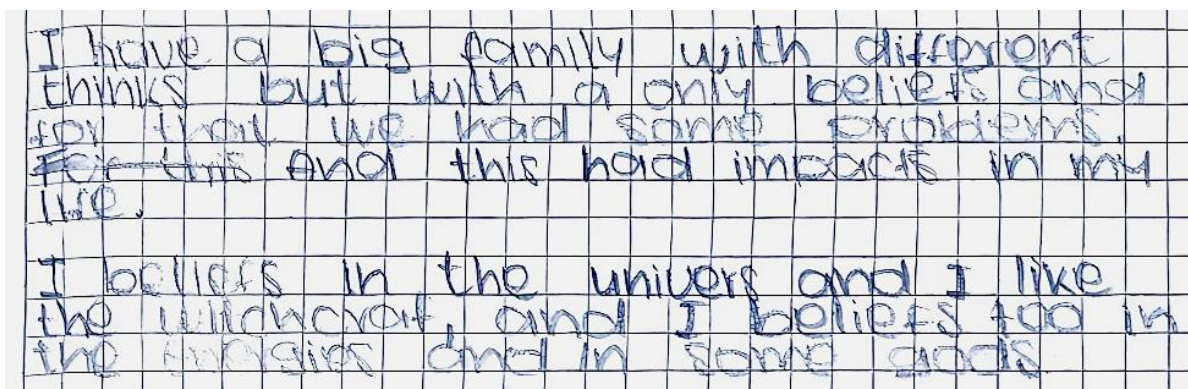 I have a big family with different
thinks but with a only beliefs and
for that we had some problems.
For this And this had impacts in my
life.
I beliefs in the univers and I like
the witchcraft, and I beliefs too in
the energies and in some gods